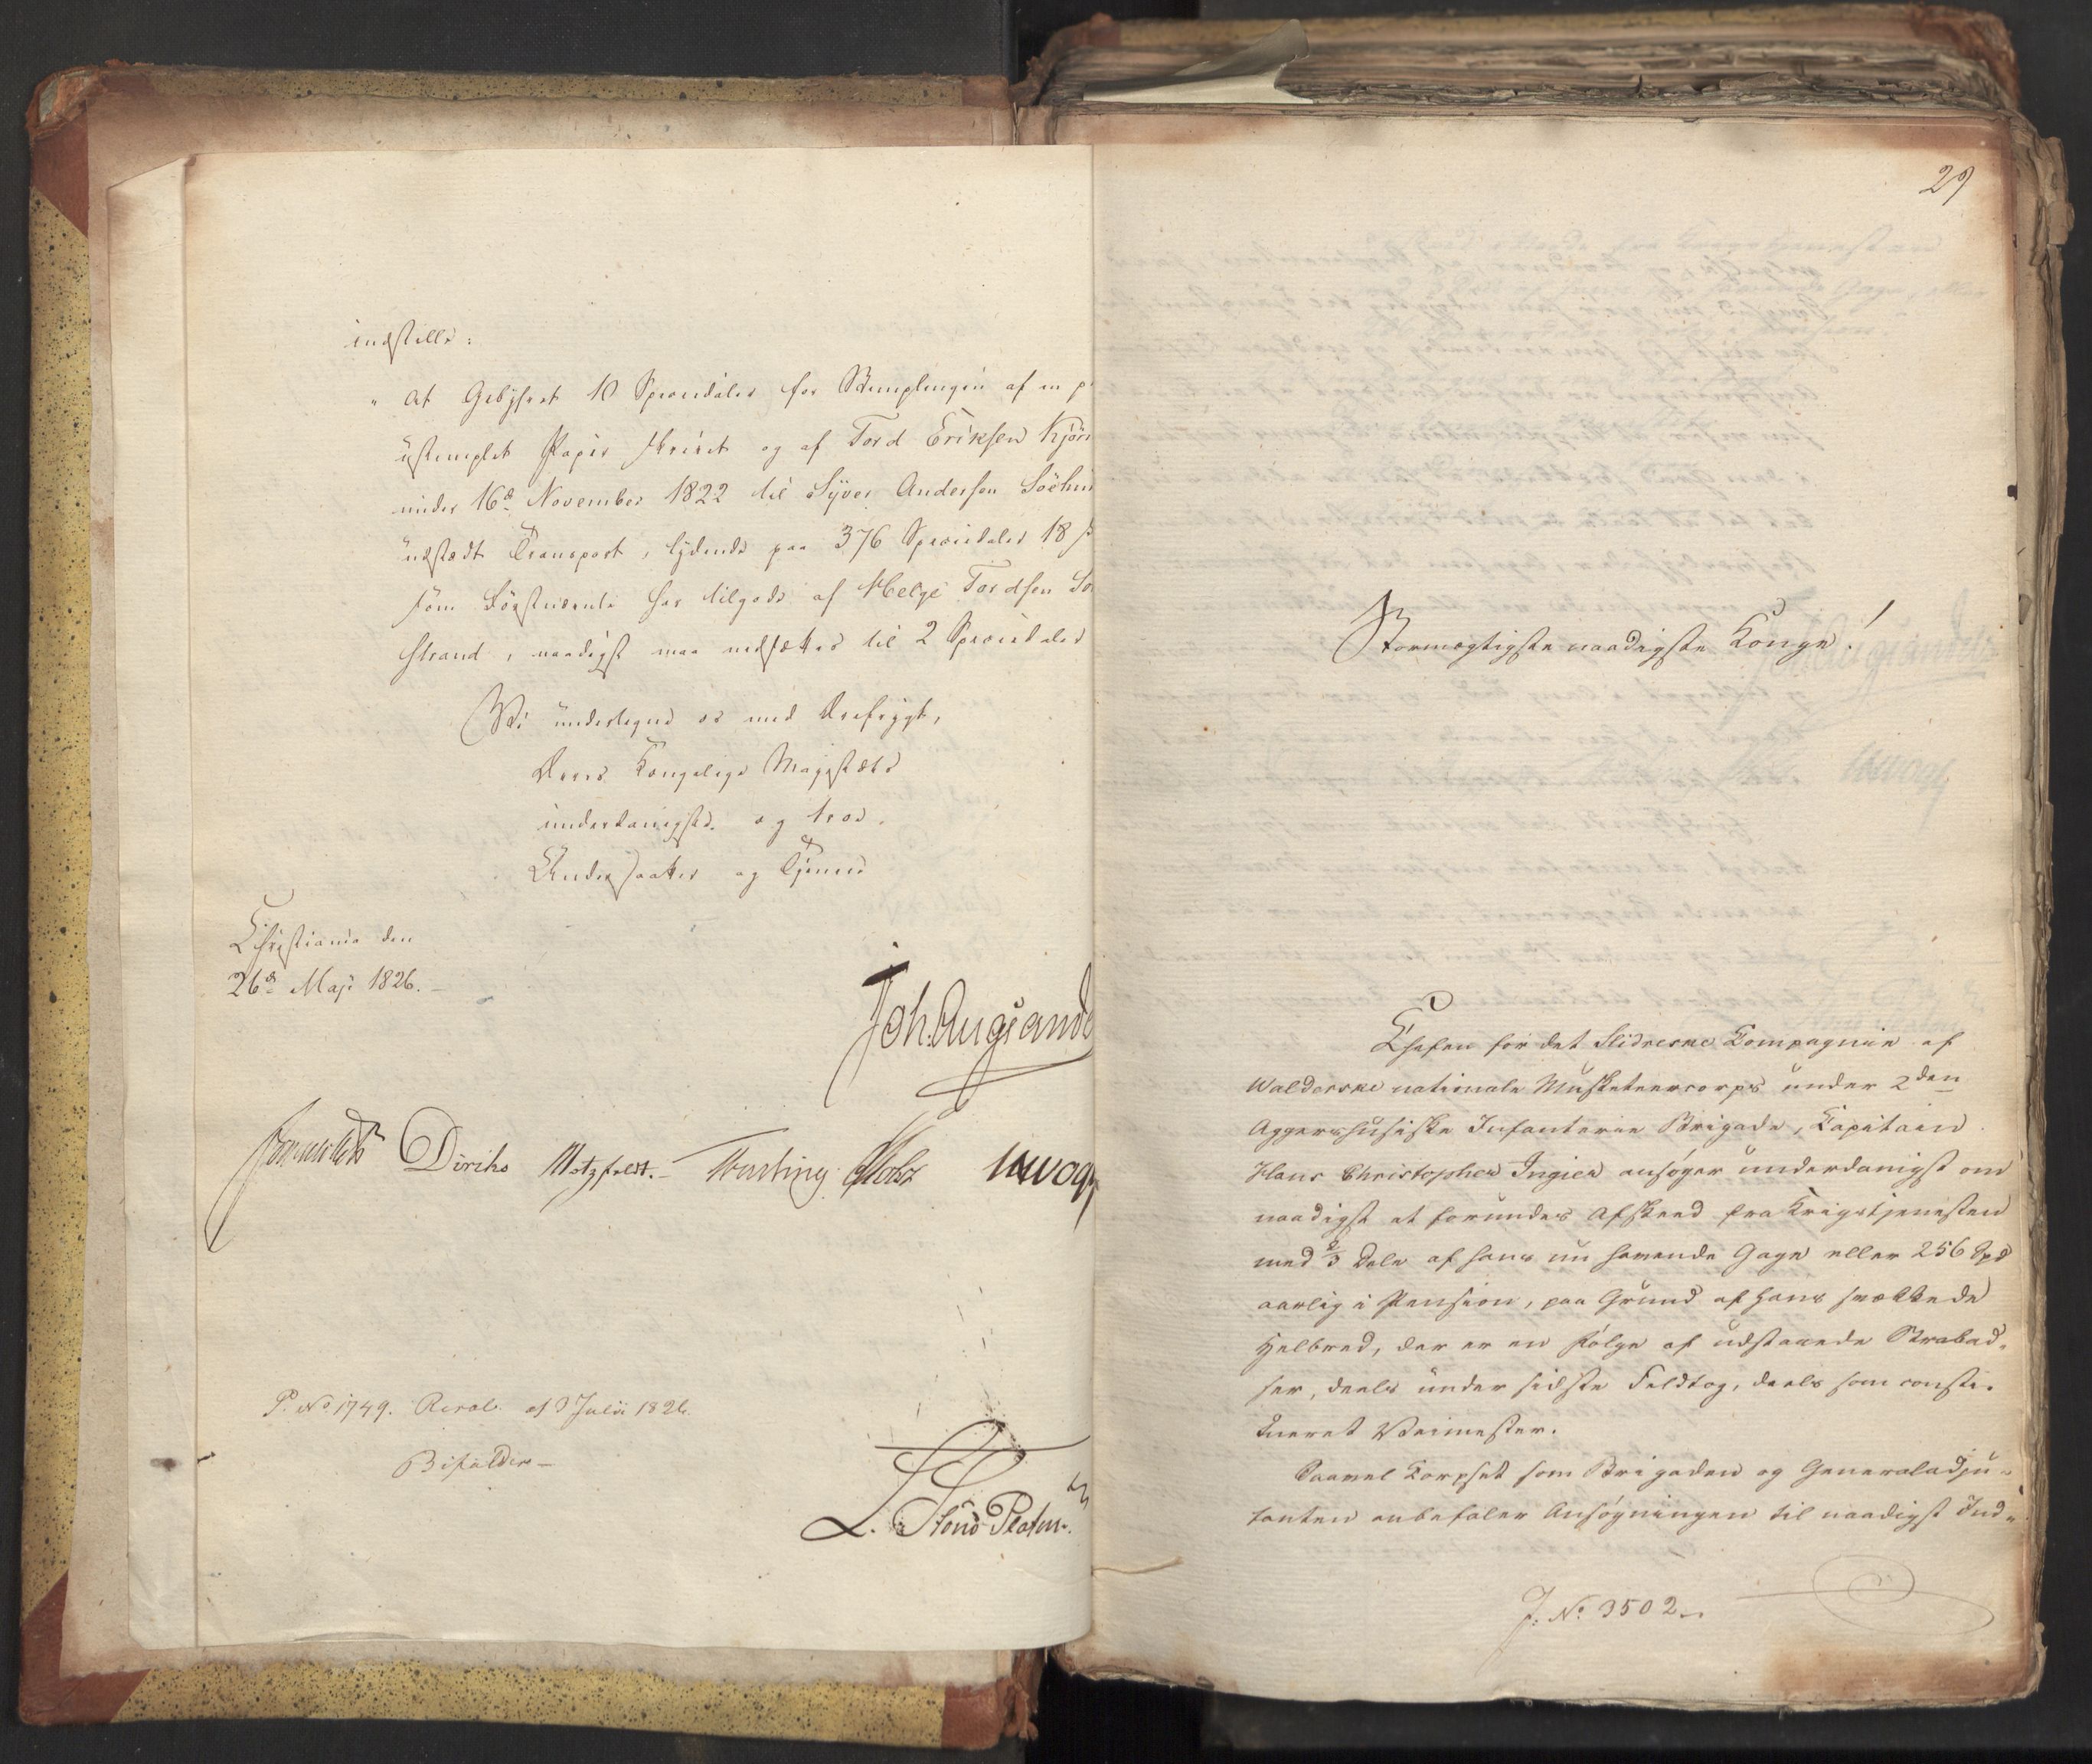 indstille:
"At Gebyhret 10 Speciedaler for Stemplingen af en p
ustemplet Papir skrevet og af Tord Eriksen Kjörn
under 16d November 1822 til Syver Andersen
udstædt Transport, lydende paa 376 Speciedaler 18 s
som Förstnævnte har tilgode af Helge Tordsen
strand, naadigst maa nedsættes til 2 Speciedaler
Vi undertegne os med Ærefrygt,
Deres Kongelige Majestæts
underdanigste og troe
Undersaatter og Tjenere
Christiania den
26d Maji 1826.
Joh. Aug. Sande
Diriks Motzfeldt. Fasting. Holst
P. No 1749. Resol. af 9 Julii 1826.
Bifalder
29
Stormægtigste naadigste Konge!
Chefen for det Slidreske Compagnie af
Walderske nationale Musketeercorps under 2den
Aggershusiske Infanterie Brigade, Capitain
Hans Christopher Ingier ansøger underdanigst om
naadigst at forundes Afskeed fra Krigstjenesten
med 2/3 Dele af hans nu havende Gage eller 256 Spd
aarlig i Pension, paa Grund af hans svækkede
Helbred, der er en Følge af udstaaede Strabad-
ser, deels under sidste Feldtog, deels som consti-
tueret Veimester.
Saavel Corpset som Brigaden og Generaladju-
tanten anbefaler Ansøgningen til naadigst Ind-
J. No 3502